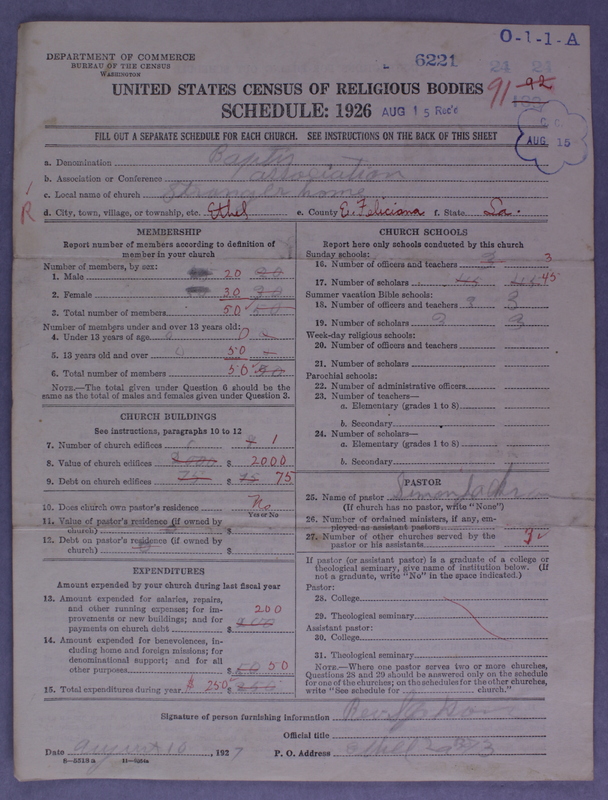 O-1-1-A
DEPARTMENT OF COMMERCE
BUREAU OF THE CENSUS
WASHINGTON
6221
24 21
UNITED STATES CENSUS OF RELIGIOUS BODIES
91 92
SCHEDULE: 1926
AUG 15 Rec'd
AUG. 15
FILL OUT A SEPARATE SCHEDULE FOR EACH CHURCH. SEE INSTRUCTIONS ON THE BACK OF THIS SHEET
a. Denomination
b. Association or Conference association
c. Local name of church Stranger home
R
d. City, town, village, or township, etc. Ethel e. County E. Feliciana f. State La.
MEMBERSHIP
Report number of members according to definition of
member in your church
Number of members, by sex:
1. Male 20 20
2. Female 30 30
3. Total number of members 50 50
Number of members under and over 13 years old:
4. Under 13 years of age 0
5. 13 years old and over 50
6. Total number of members 50 50
NOTE.—The total given under Question 6 should be the
same as the total of males and females given under Question 3.
CHURCH BUILDINGS
See instructions, paragraphs 10 to 12
7. Number of church edifices 1
8. Value of church edifices 2000 $ 2000
9. Debt on church edifices 75 $ 75 75
10. Does church own pastor's residence No
Yes or No
11. Value of pastor's residence (if owned by
church) $
12. Debt on pastor's residence (if owned by
church) $
EXPENDITURES
Amount expended by your church during last fiscal year
13. Amount expended for salaries, repairs,
and other running expenses; for im-
provements or new buildings; and for
payments on church debt $ 200 200
14. Amount expended for benevolences, in-
cluding home and foreign missions; for
denominational support; and for all
other purposes $ 50 50
15. Total expenditures during year $ 250 $ 250
CHURCH SCHOOLS
Report here only schools conducted by this church
Sunday schools:
16. Number of officers and teachers 3 3
17. Number of scholars 45 45
Summer vacation Bible schools:
18. Number of officers and teachers 3 3
19. Number of scholars 3 3
Week-day religious schools:
20. Number of officers and teachers
21. Number of scholars
Parochial schools:
22. Number of administrative officers
23. Number of teachers—
a. Elementary (grades 1 to 8)
b. Secondary
24. Number of scholars—
a. Elementary (grades 1 to 8)
b. Secondary
PASTOR
25. Name of pastor
(If church has no pastor, write "None")
26. Number of ordained ministers, if any, em-
ployed as assistant pastors
27. Number of other churches served by the
pastor or his assistants
If pastor (or assistant pastor) is a graduate of a college or
theological seminary, give name of institution below. (If
not a graduate, write "No" in the space indicated.)
Pastor:
28. College
29. Theological seminary
Assistant pastor:
30. College
31. Theological seminary
NOTE.—Where one pastor serves two or more churches,
Questions 28 and 29 should be answered only on the schedule
for one of the churches; on the schedules for the other churches,
write "See schedule for church."
Signature of person furnishing information Rev.
Official title
Date august 10, 1927 P. O. Address
8—5513 a 11—5264a